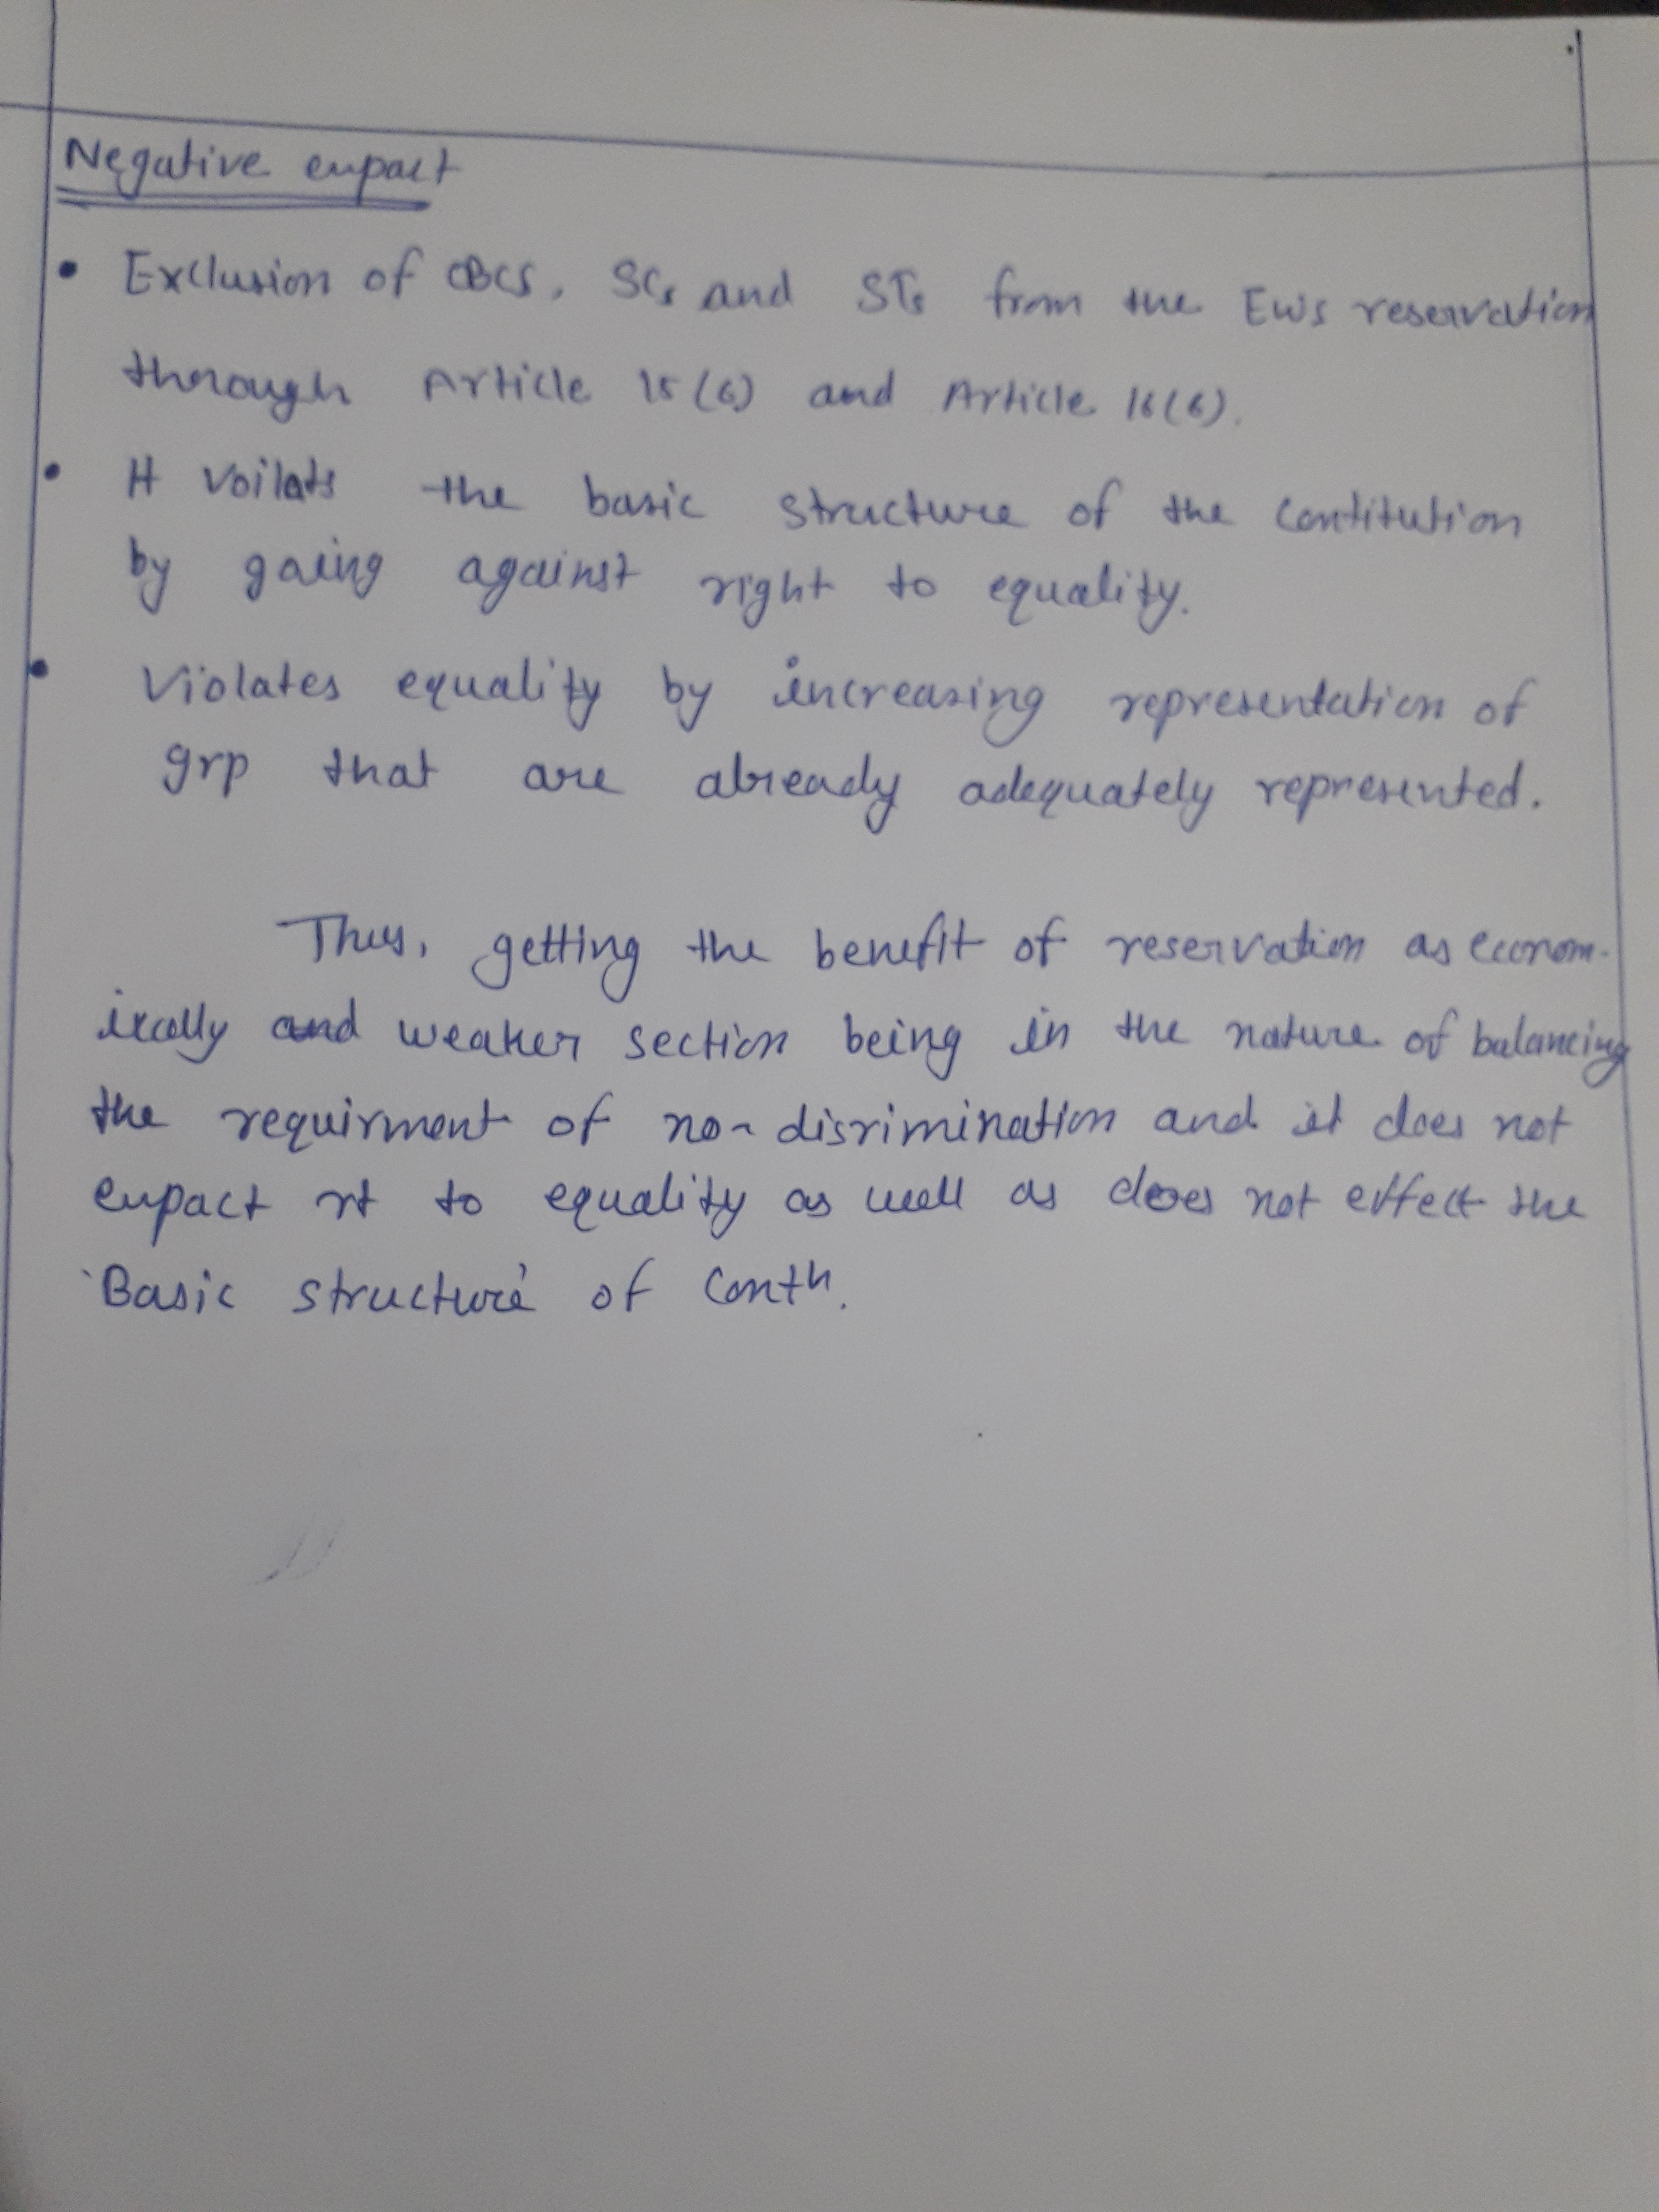 Negative empact
• Exclusion of OBCS, SCs and STs from the EWS reservation
thorough Article 15(6) and Article 16(6).
• It Voilats the basic structure of the Contitution
by going against right to equality.
• Violates equality by increasing representation of
grp that are already adequately represented.
Thus, getting the benefit of reservation as econom-
ically and weaker section being in the nature of balancing
the requirment of non-disrimination and it does not
empact rt to equality as well as does not effect the
Basic structure of Contn.